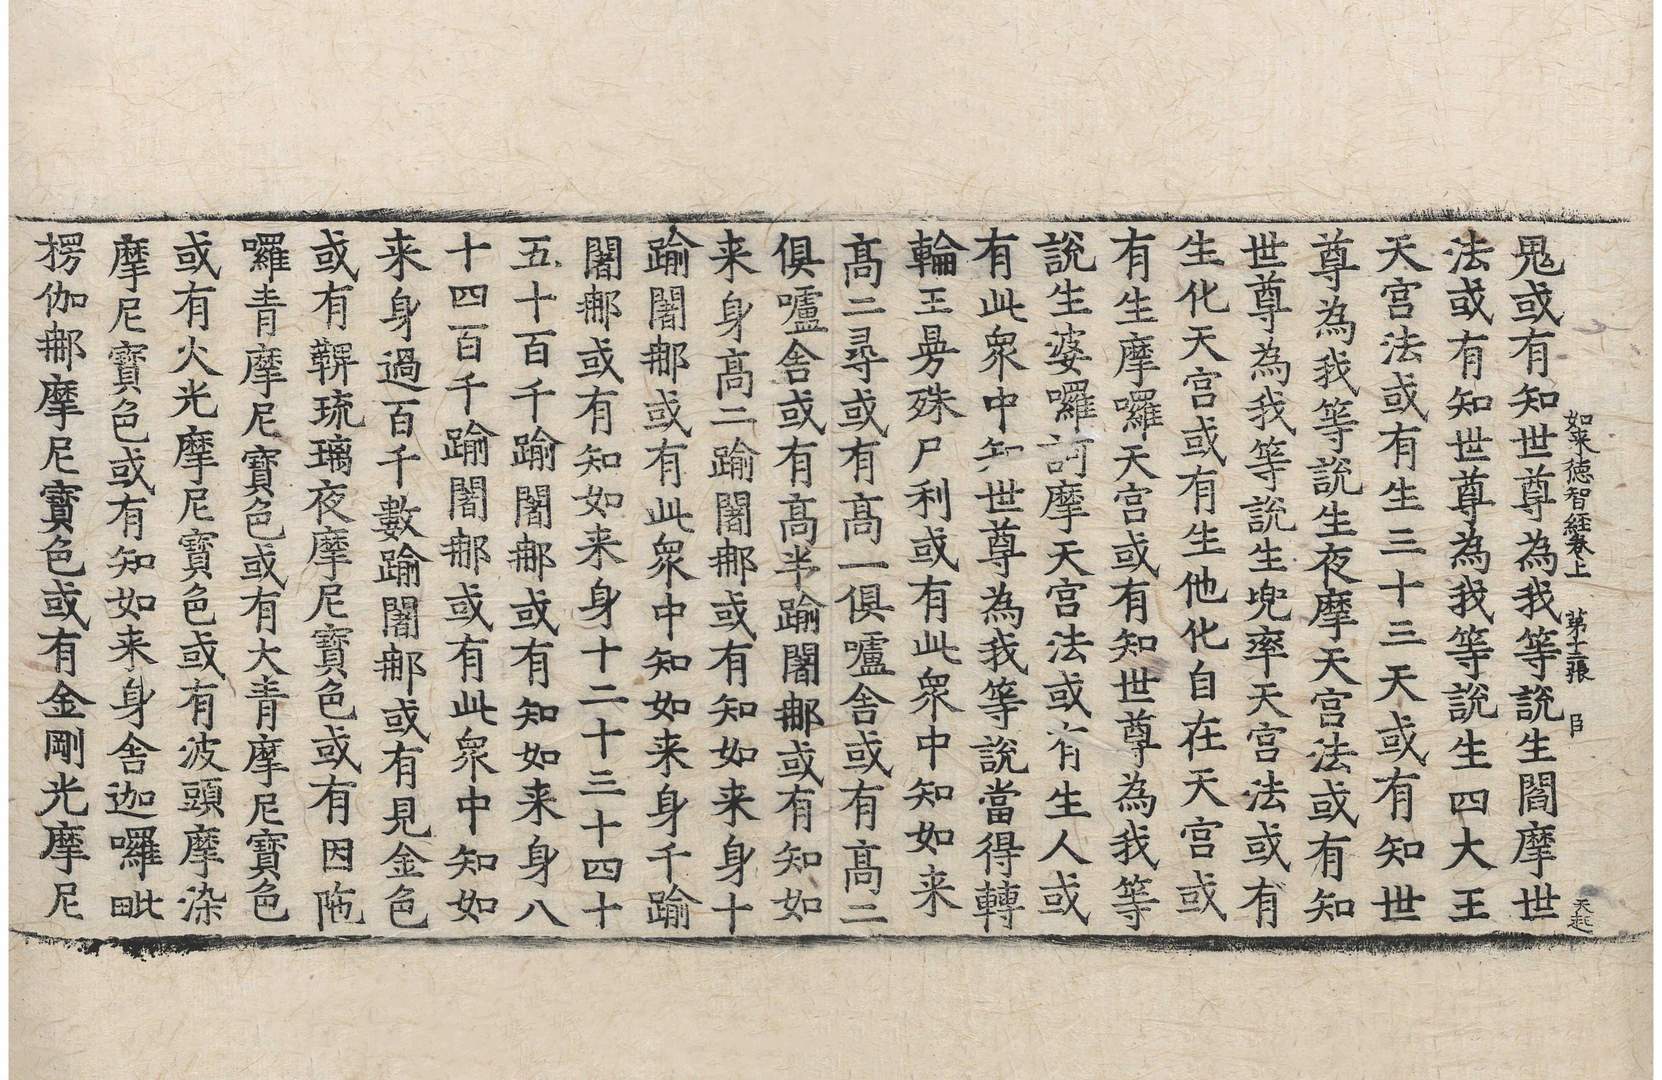 如来德智經卷上　第十二張　臣
天起
鬼或有知世尊為我等說生閻摩世
法或有知世尊為我等說生四大王
天宮法或有生三十三天或有知世
尊為我等說生夜摩天宮法或有知
世尊為我等說生兜率天宮法或有
生化天宮或有生他化自在天宮或
有生摩囉天宮或有知世尊為我等
說生婆囉訶摩天宮法或有生人或
有此衆中知世尊為我等說當得轉
輪王曼殊尸利或有此衆中知如来
髙二尋或有髙一俱嚧舍或有髙二
俱嚧舍或有髙半踰闍那或有知如
来身髙二踰闍那或有知如来身十
踰闍那或有此衆中知如来身千踰
闍那或有知如来身十二十三十四十
五十百千踰闍那或有知如来身八
十四百千踰闍那或有此衆中知如
来身過百千數踰闍那或有見金色
或有鞞琉璃夜摩尼寶色或有因陁
囉青摩尼寶色或有大青摩尼寶色
或有火光摩尼寶色或有波頭摩染
摩尼寶色或有知如来身舍迦囉毗
楞伽那摩尼寶色或有金剛光摩尼